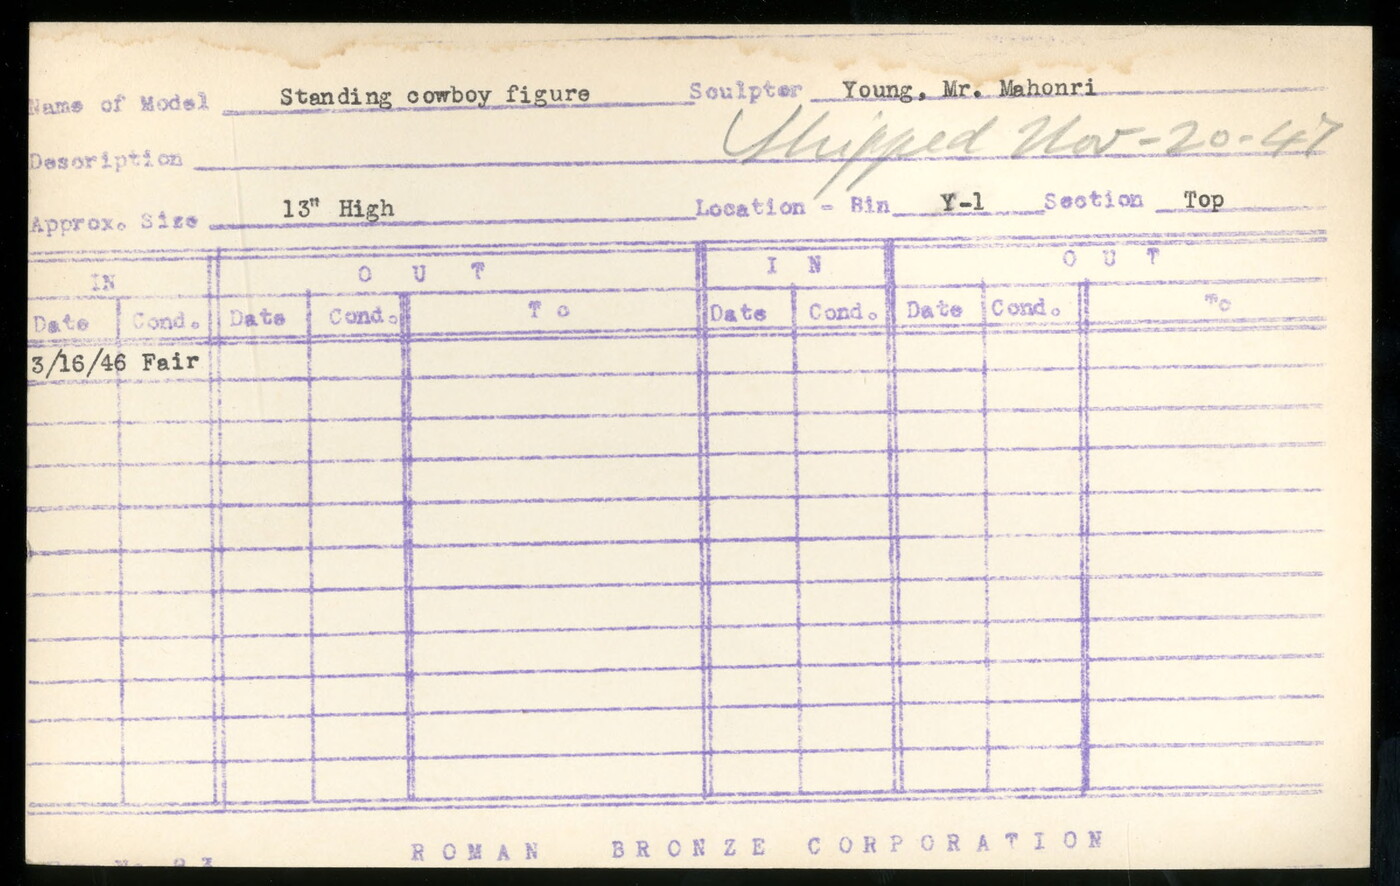 Name of Model Standing cowboy figure Sculptor Young, Mr. Mahonri
Shipped Nov-20-47
Description
Approx. Size 13" High Location - Bin Y-1 Section Top
IN O U T I N O U T
Date Cond. Date Cond. To Date Cond. Date Cond. To
3/16/46 Fair
ROMAN BRONZE CORPORATION